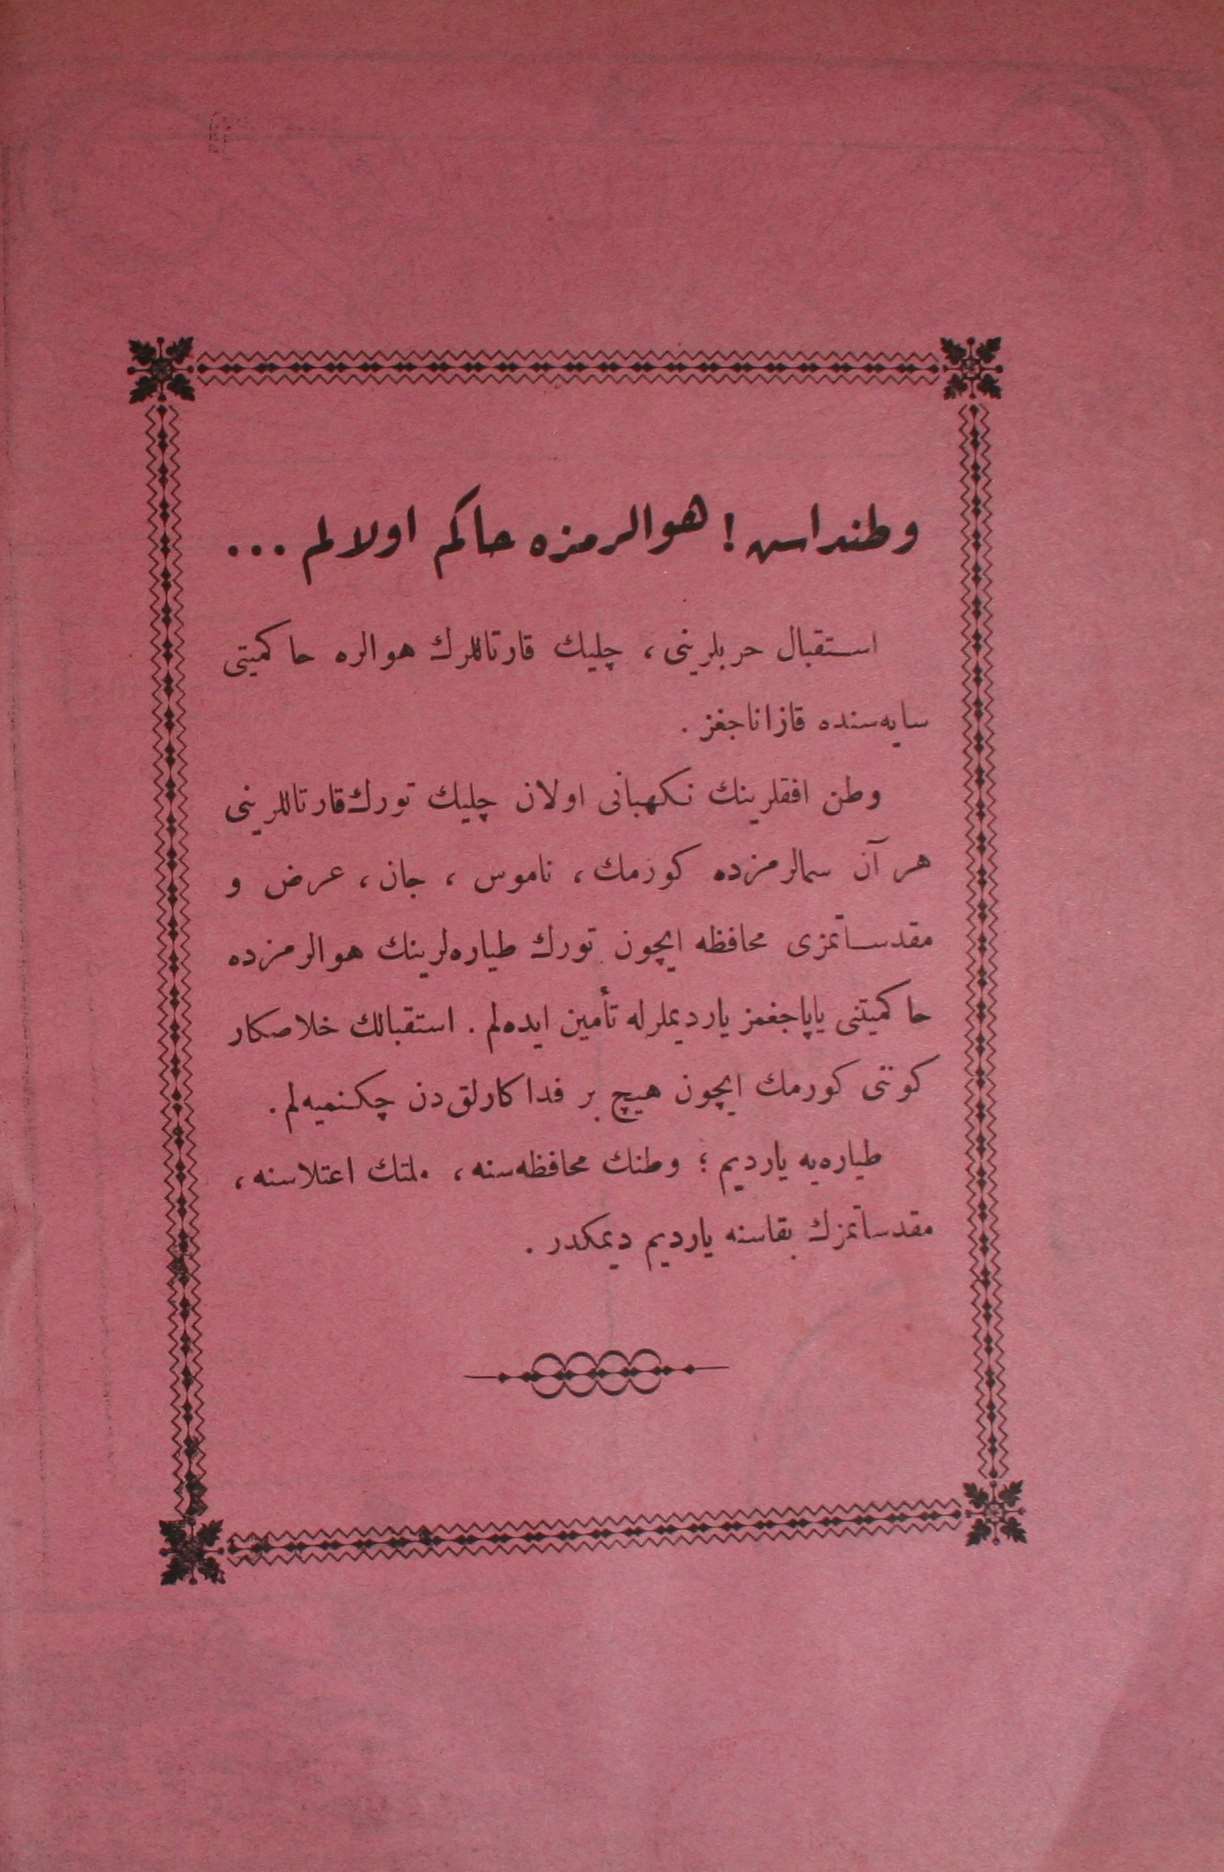 وطنداش! هوالرمزه حاكم اولالم ...
استقبال حربلرینی، چلیك قارتاللرك هوالره حاكمیتی
سایه‌سنده قازاناجغز.
وطن افقلرینك نكهبانی اولان چلیك تورك قارتاللرینی
هر آن سمالرمزده كورمك، ناموس، جان، عرض و
مقدساتمزی محافظه ایچون تورك طیاره‌لرینك هوالرمزده
حاكمیتنی یاپاجغمز یاردیملرله تأمین ایده‌لم. استقبالك خلاصكار
كوننی كورمك ایچون هیچ بر فداكارلق‌دن چكنمیه‌لم.
طیاره‌یه یاردیم؛ وطنك محافظه‌سنه، ملتك اعتلاسنه،
مقدساتمزك بقاسنه یاردیم دیمكدر.